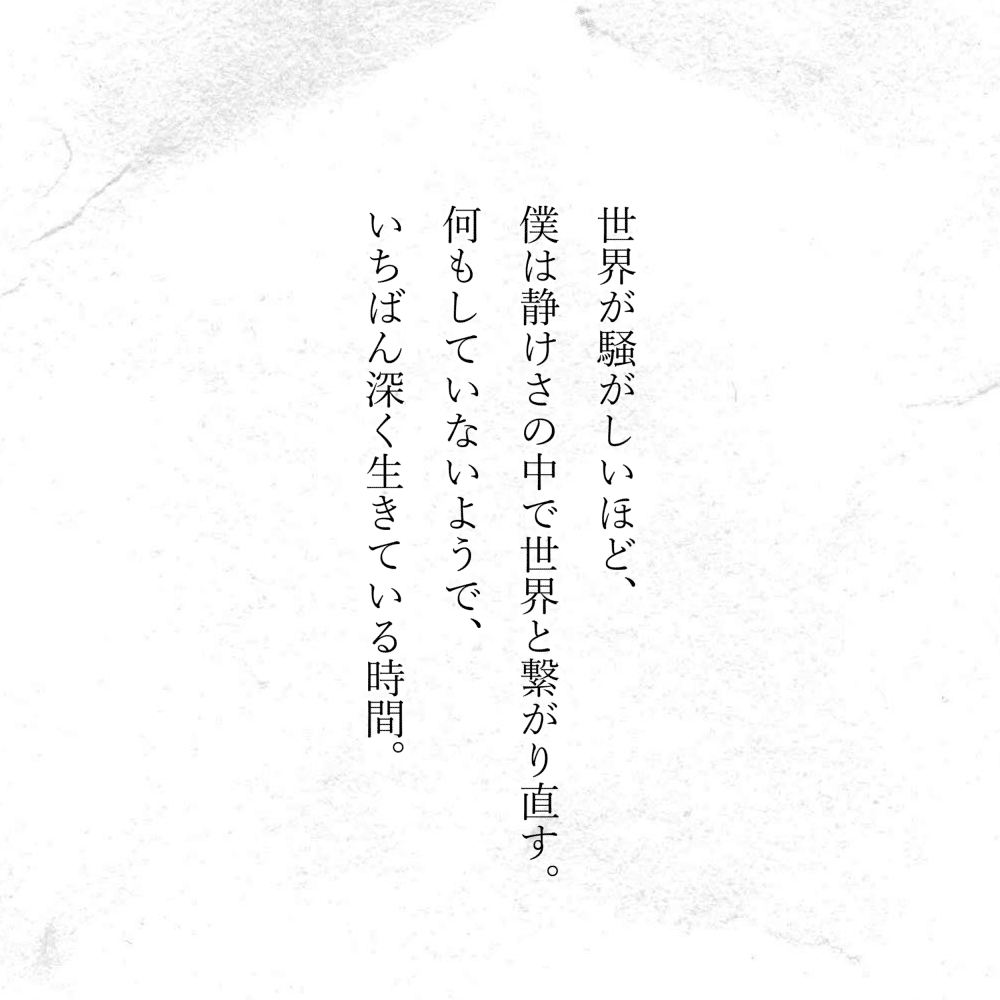 世界が騒がしいほど、
僕は静けさの中で世界と繋がり直す。
何もしていないようで、
いちばん深く生きている時間。